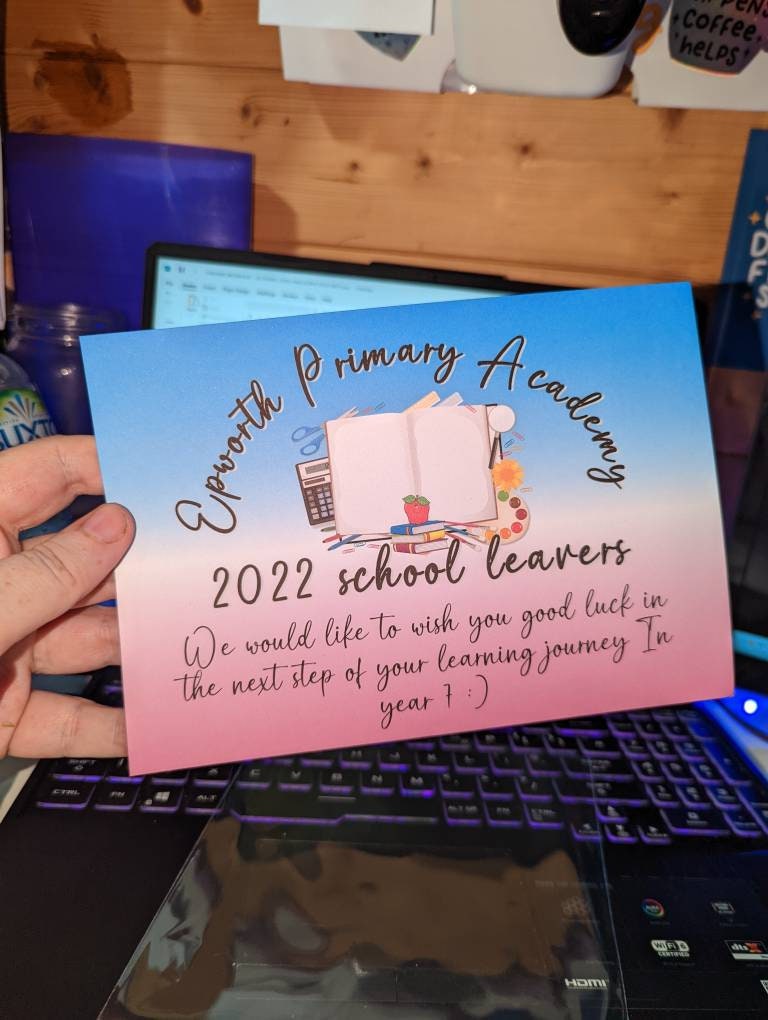 COFFEE
helps
Epworth Primary Academy
2022 school leavers
We would like to wish you good luck in
the next step of your learning journey In
year 7 :)
SHIFT
CTRL
FN
ALT
HDMI
WiFi 6
CERTIFIED
dts